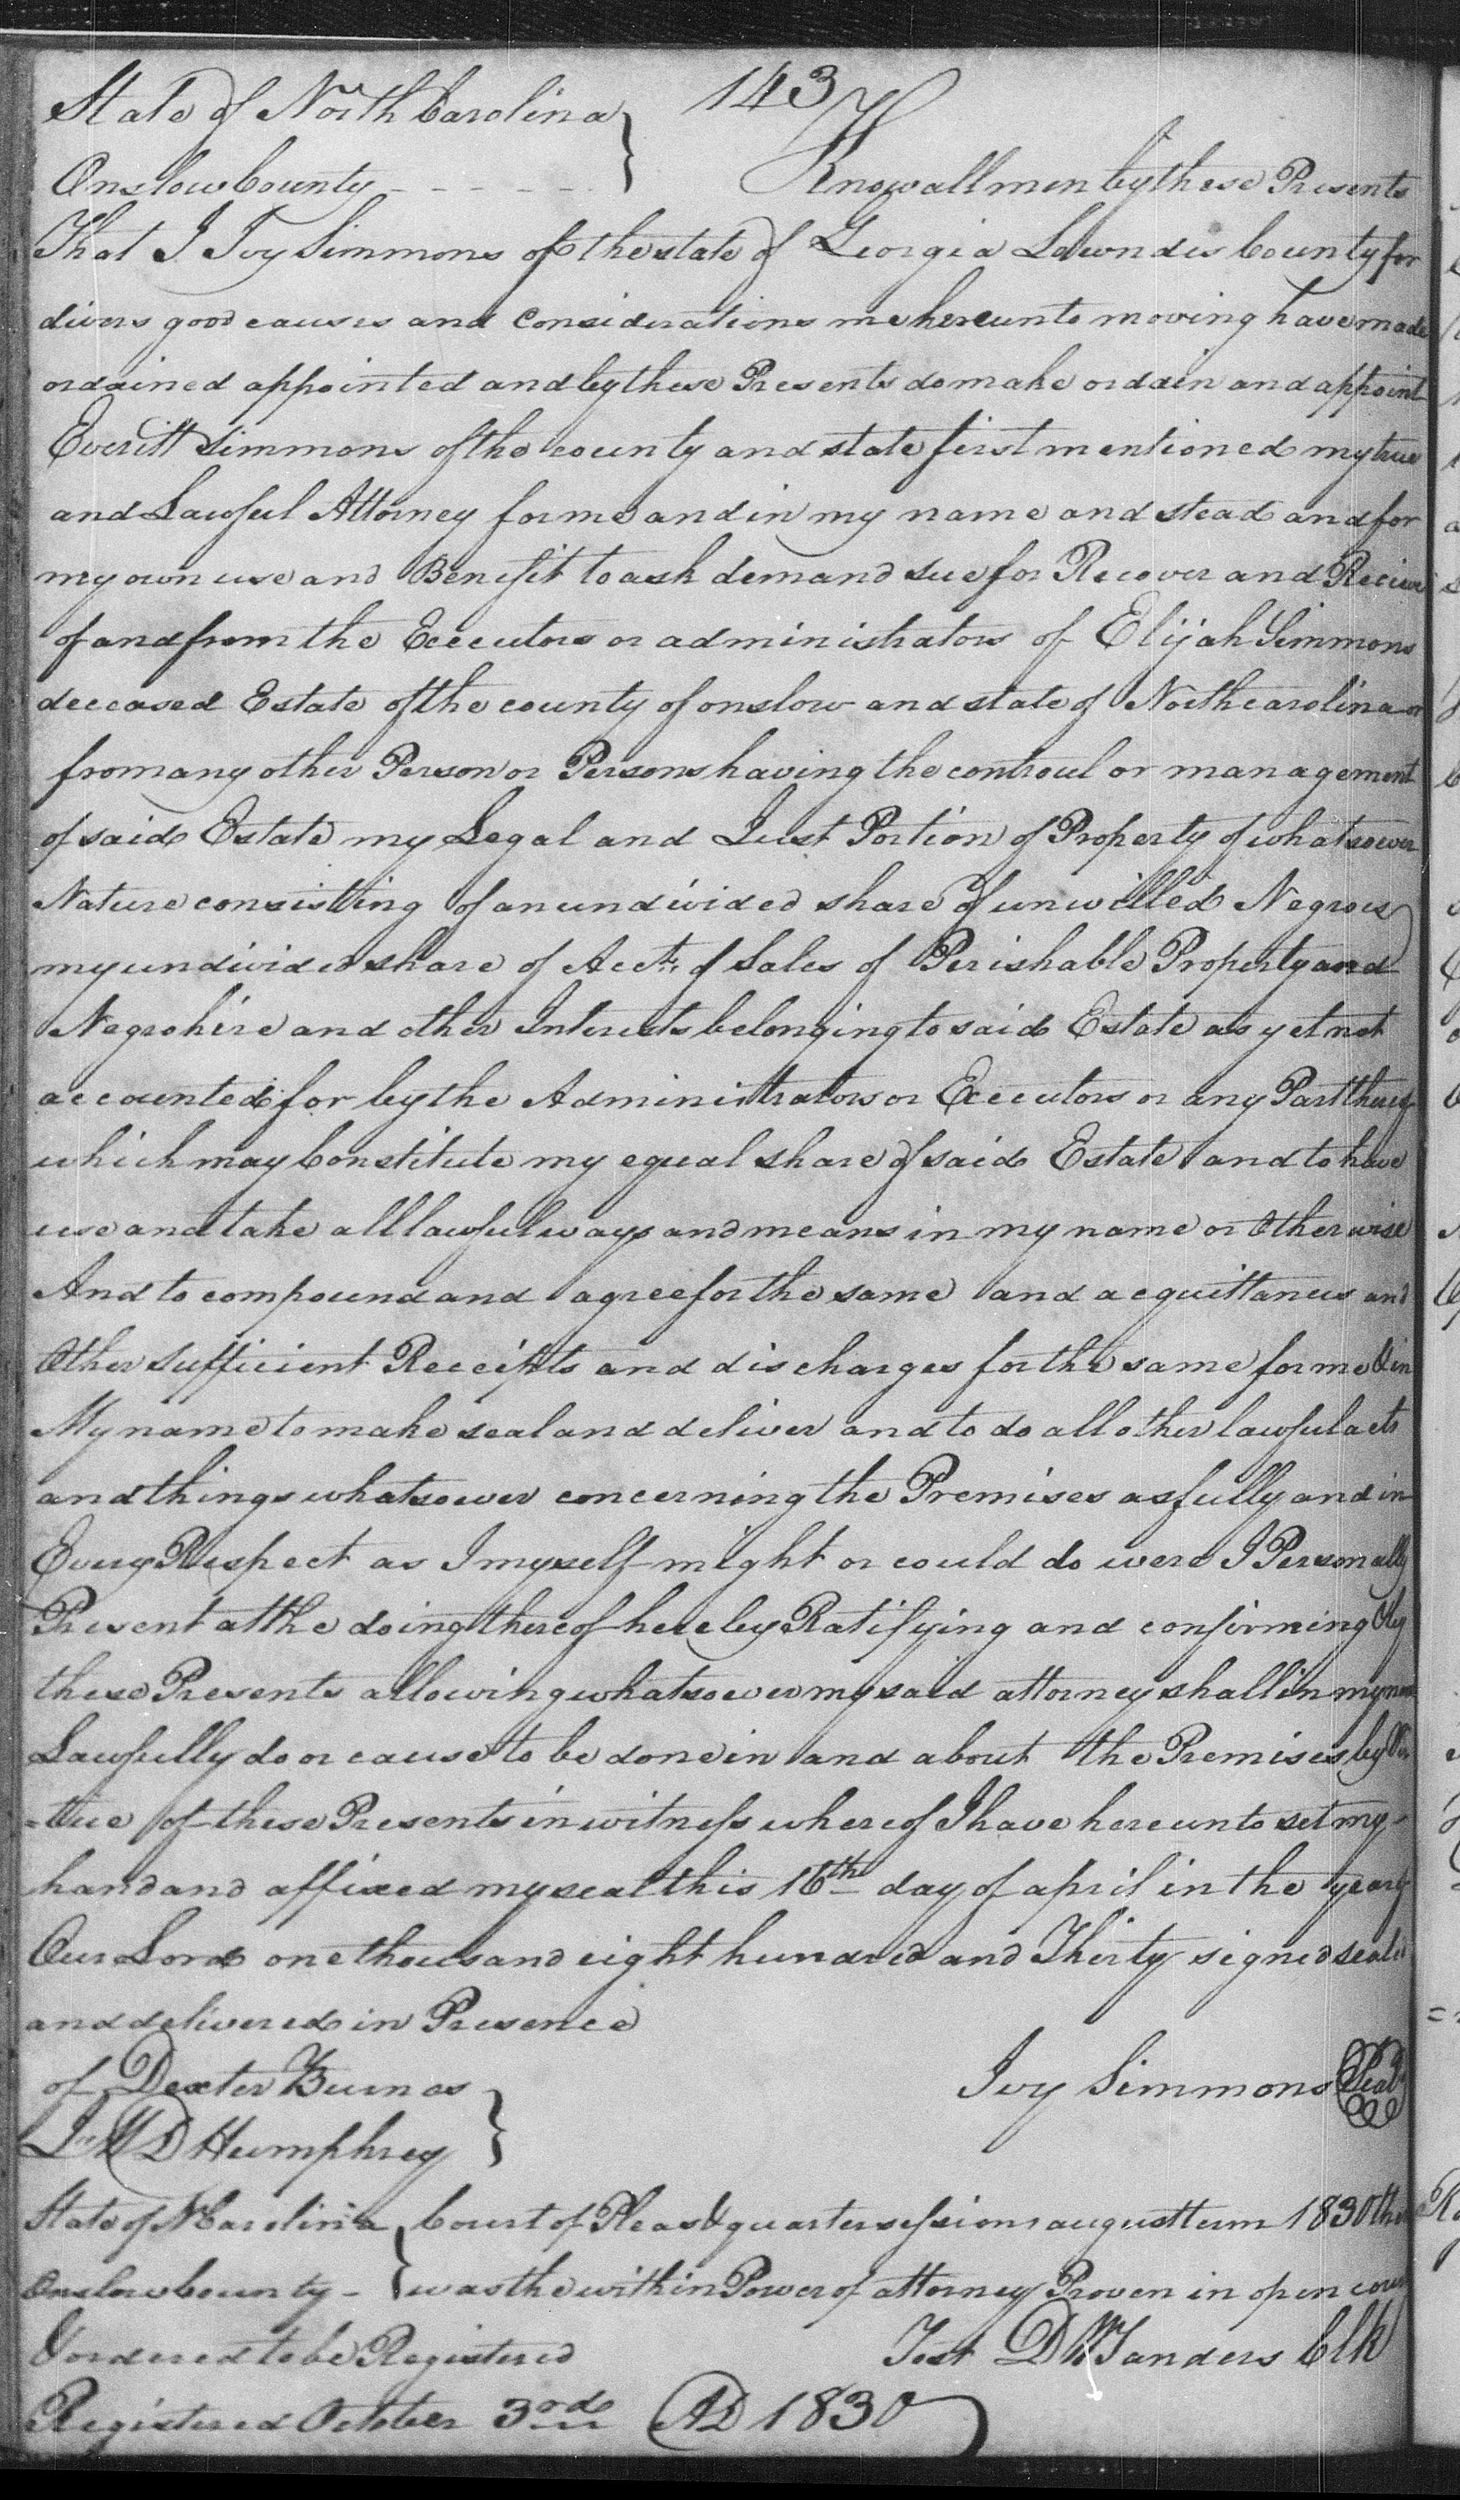 143
State of North Carolina }
Onslow County - - - - - } Know all men by these Presents
That I Ivy Simmons of the state of Georgia Lowndes County for
divers good causes and considerations me hereunto moving have made
ordained appointed and by these Presents do make ordain and appoint
Everitt Simmons of the county and state first mentioned my true
and Lawful Attorney for me and in my name and stead and for
my own use and Benefit to ask demand sue for Recover and Recieve
of and from the Executors or administrators of Elijah Simmons
deceased Estate of the county of onslow and state of North carolina or
from any other Person or Persons having the controul or management
of said Estate my Legal and Just Portion of Property of whatsoever
Nature consisting of an undivided share of unwilled Negroes
my undivided share of Acct. of Sales of Perishable Property and
Negro hire and other Interests belonging to said Estate as yet not
accounted for by the Administrators or Executors or any Part thereof
which may Constitute my equal share of said Estate and to have
use and take all lawful ways and means in my name or Otherwise
And to compound and agree for the same and acquittances and
Other sufficient Receipts and discharges for the same for me & in
My name to make seal and deliver and to do all other lawful acts
and things whatsoever concerning the Premises as fully and in
Every Respect as I myself might or could do were I Personally
Present at the doing thereof hereby Ratifying and confirming & by
these Presents allowing whatsoever my said attorney shall in my name
Lawfully do or cause to be done in and about the Premises by Vir
=tue of these Presents in witness whereof I have hereunto set my
hand and affixed my seal this 16th day of april in the year of
Our Lord one thousand eight hundred and Thirty signed sealed
and delivered in Presence
of Dexter Burnas } Ivy Simmons Seal
D Humphrey }
State of N Carolina } Court of Pleas & quarter sessions august term 1830 then
Onslow County - } was the within Power of attorney Proven in open court
& ordered to be Registered Test D W Sanders Clk
Registered October 3rd AD 1830